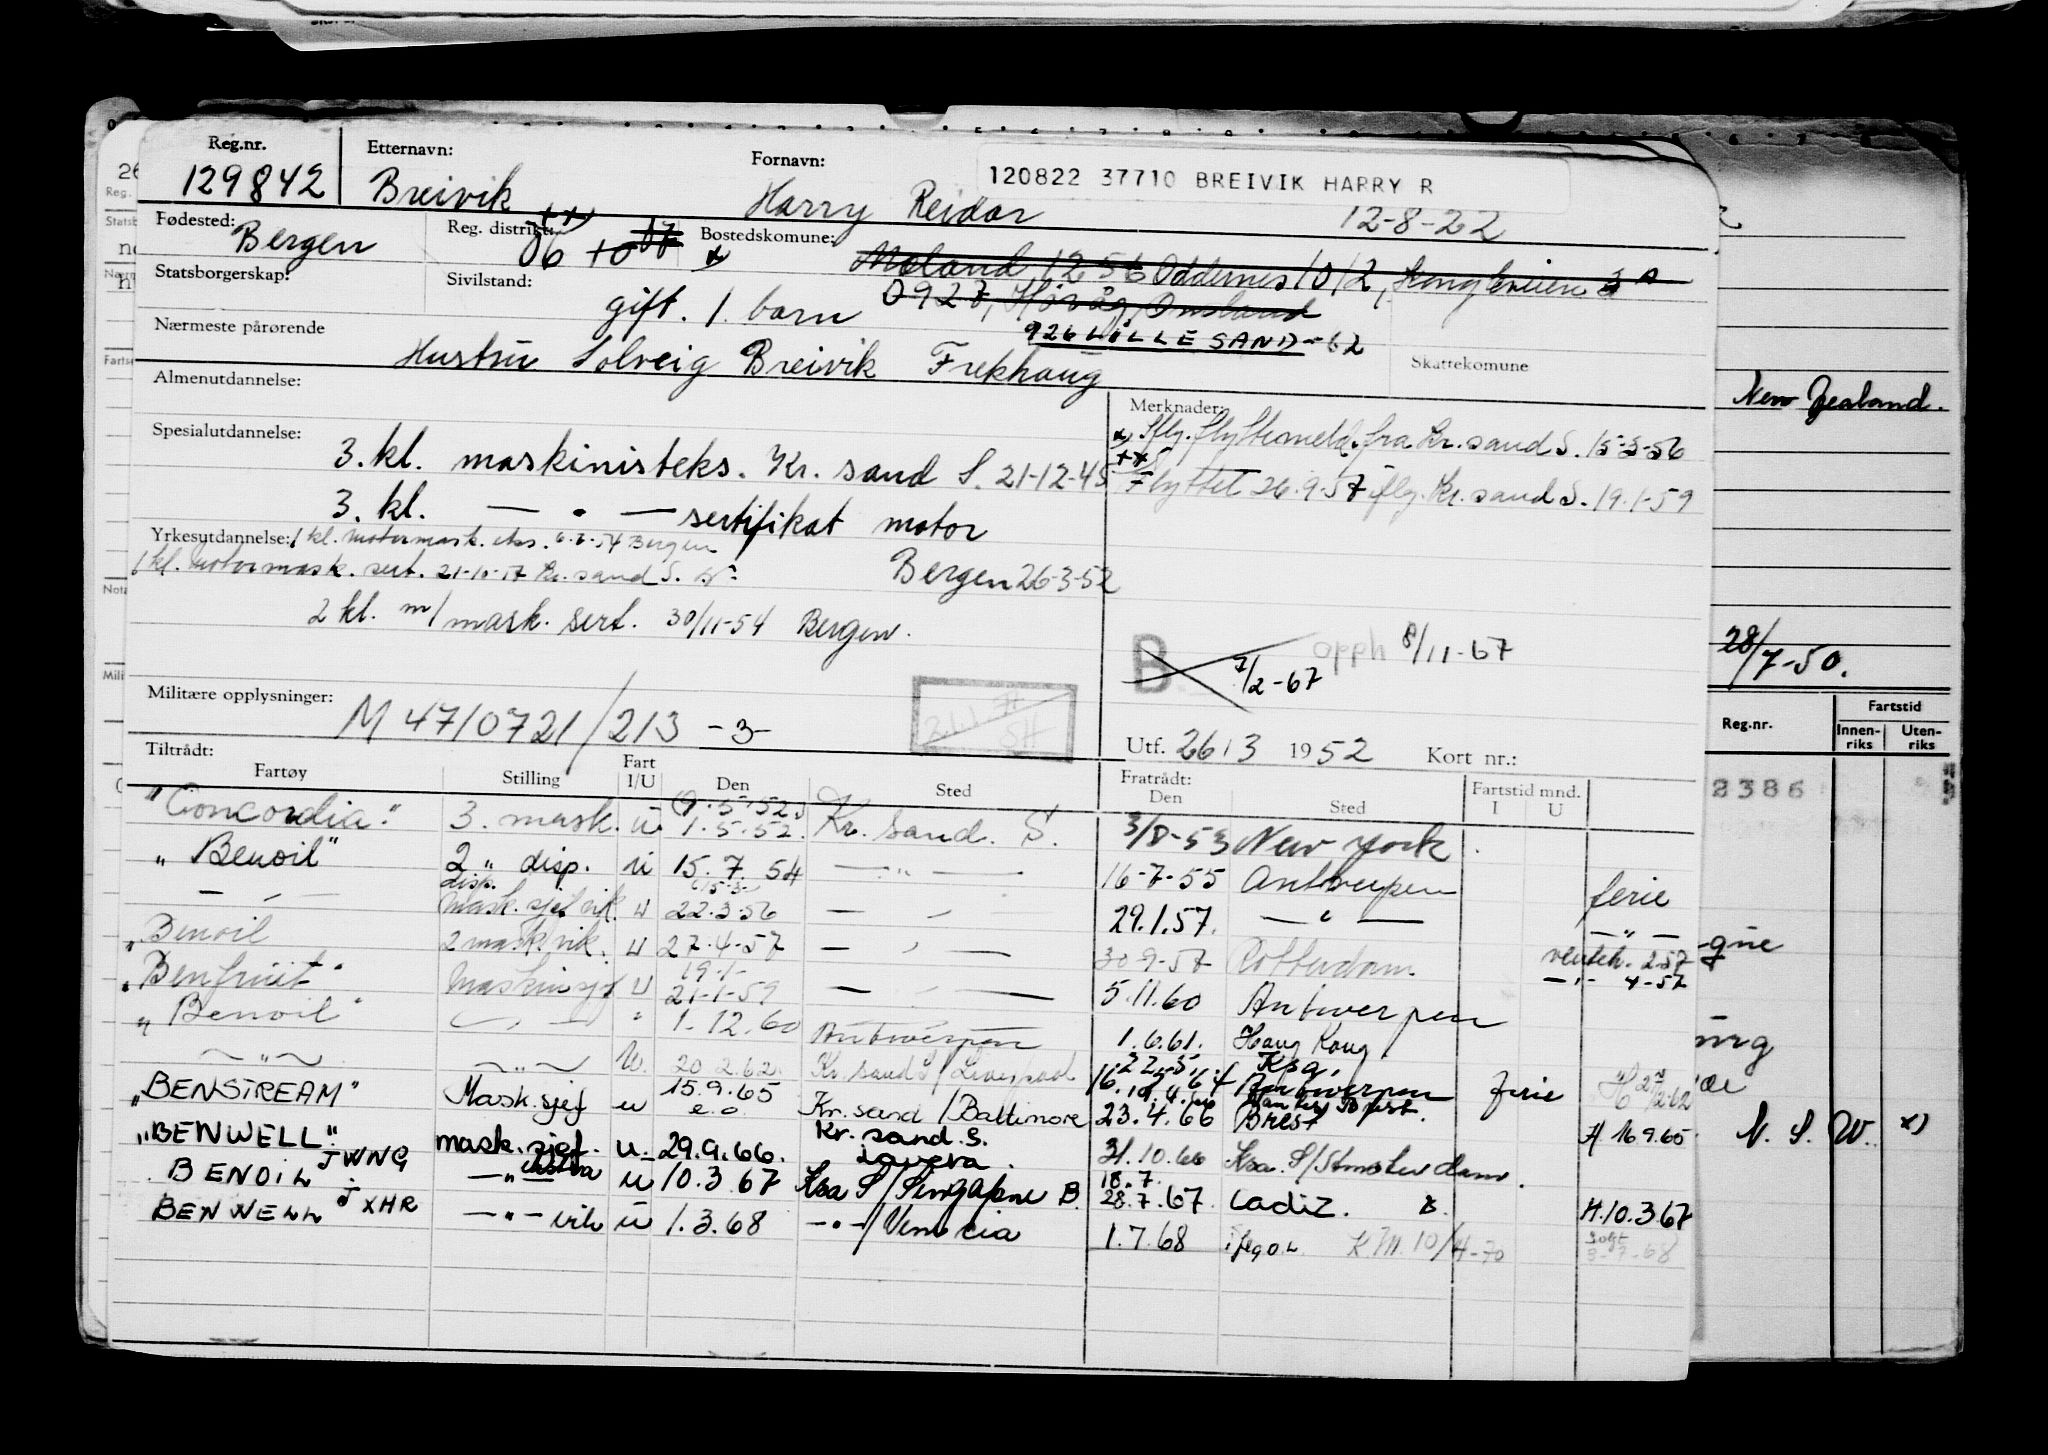 Reg.nr.
129842
Etternavn:
Breivik
Fornavn:
Harry Reidar
120822 37710 BREIVIK HARRY R
12-8-22
Fødested:
Bergen
Reg. distrikt:
06
Bostedskomune:
Moland 1256 Oddernes 1012,
Statsborgerskap:
Sivilstand:
gift. 1. barn
0927, Høvåg,
926 LILLESAND - 62
Nærmeste pårørende
Hustru Solveig Breivik Frekhaug
Skattekomune
Almenutdannelse:
Merknader:
x) flyttemeld. fra Kr.sand S. 15-3-56
xx) Flyttet 26.9.57 iflg. Kr.sand S. 19.1-59
Spesialutdannelse:
3. kl. maskinisteks. Kr. sand S. 21-12-45
3. kl. — " — sertifikat motor
Bergen 26-3-52
Yrkesutdannelse:
1 kl. motormask. eks. Bergen
1 kl. motormask. sert. Kr. sand S.
2 kl. m/mask. sert. 30/11-54 Bergen.
B
7/2-67
opph 8/11-67
Militære opplysninger:
M 4710721/213 -3-
Utf. 26/3 1952
Kort nr.:
Tiltrådt:
Fartøy Stilling Fart I/U Den Sted
Fratrådt:
Den Sted Fartstid mnd. I U
"Concordia" 3. mask. u 1.5.52. Kr. sand. S. 3/8-53 New York
"Benoil" 2 " disp. u 15.7.54 — " — 16-7-55 Antwerpen ferie
— " — disp. mask.sjef vik. u 22.3.56 — " — 29.1.57. — " — — " —
"Benoil 2 mask. vik. u 27.4-57 — " — 30-9-57 Rotterdam
"Benfruit" Maskinsjef u 21-1-59 — " — 5.11.60 Antwerpen
"Benoil" — " — " 1.12.60 Antwerpen 1.6.61. Hong Kong
— " — — " — u. 20.2.62. Kr. sand S/Liverpool Antwerpen ferie
"BENSTREAM" Mask.sjef u 15.9.65 Kr. sand/Baltimore 23.4.66 Brest H 16.9.65
"BENWELL" JWNG mask.sjef. u 29.9.66. Kr. sand. S. Lavera. 31.10.66 Ksa. S/Amsterdam.
BENOIL JXHR — " — ekstra u 10.3.67 Ksa S/Singapore B. 18.7. 28.7.67 Cadiz. H.10.3.67
BENWELL — " — vik u 1.3.68 — " —/Venezia 1.7.68 K.M. 10/4-70 Solgt 3-7-68
New Zealand.
28/7-50.
Reg.nr.
Fartstid
Innen-riks Uten-riks
2386
N. S. W. x)